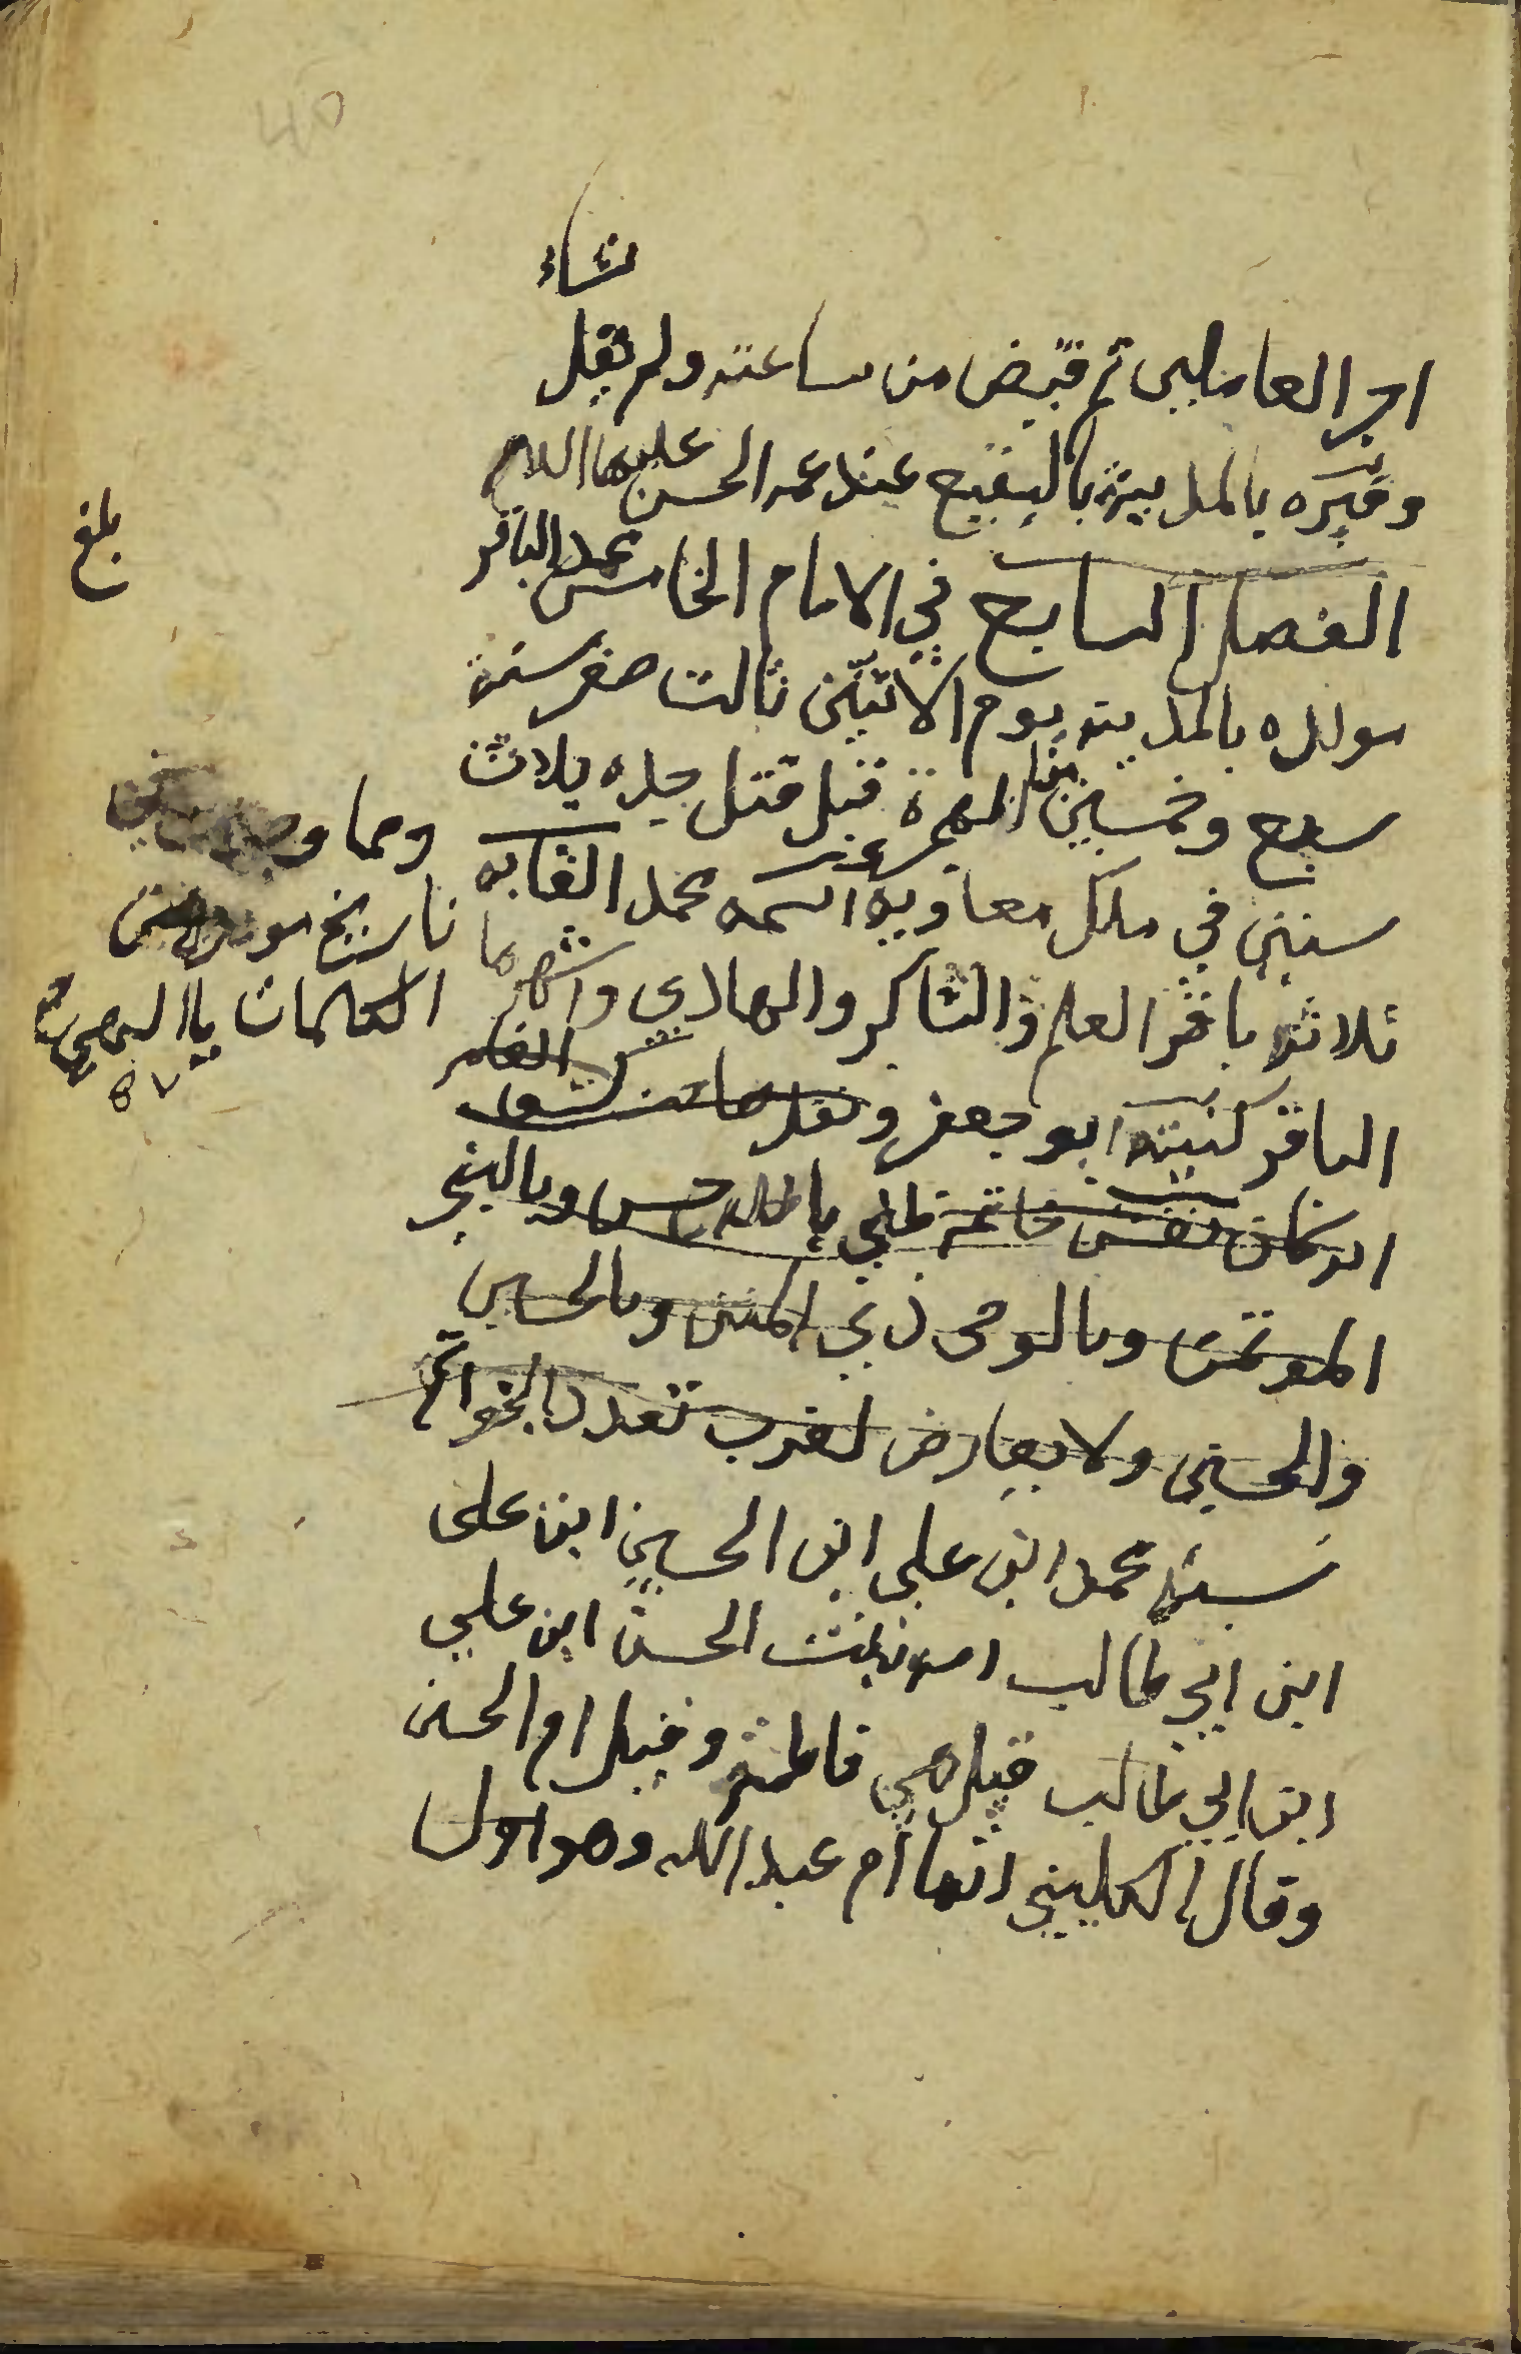 نشاء
اجر العاملين ثم قبض من ساعته ولم يقل
وقبره بالمدينة بالبقيع عند عمه الحسن عليهما السلام
الفصل السابع في الامام الخامس محمد الباقر
مولده بالمدينة يوم الاثنين ثالث صفر سنة
سبع وخمسين من الهجرة قبل قتل جده بثلاث
سنين في ملك معاوية اسمه محمد القابه
ثلاثة باقر العلم والشاكر والهادي واشهرها
الباقر كنيته ابو جعفر
نقش خاتمه ظني بالله حسن وبالنبي
الموتمن وبالوصي ذي المنن وبالحسين
والحسن ولا يعارض لقرب تعدد الخواتم
نسبه محمد ابن علي ابن الحسين ابن على
ابن ابي طالب امه بنت الحسن ابن علي
ابن ابي طالب قيل هي فاطمة وقيل ام الحسن
وقال الكليني انها ام عبد الله وهو اول
بلغ
ومما
تاريخ مولده من
الكلمات يا
٥٧
40